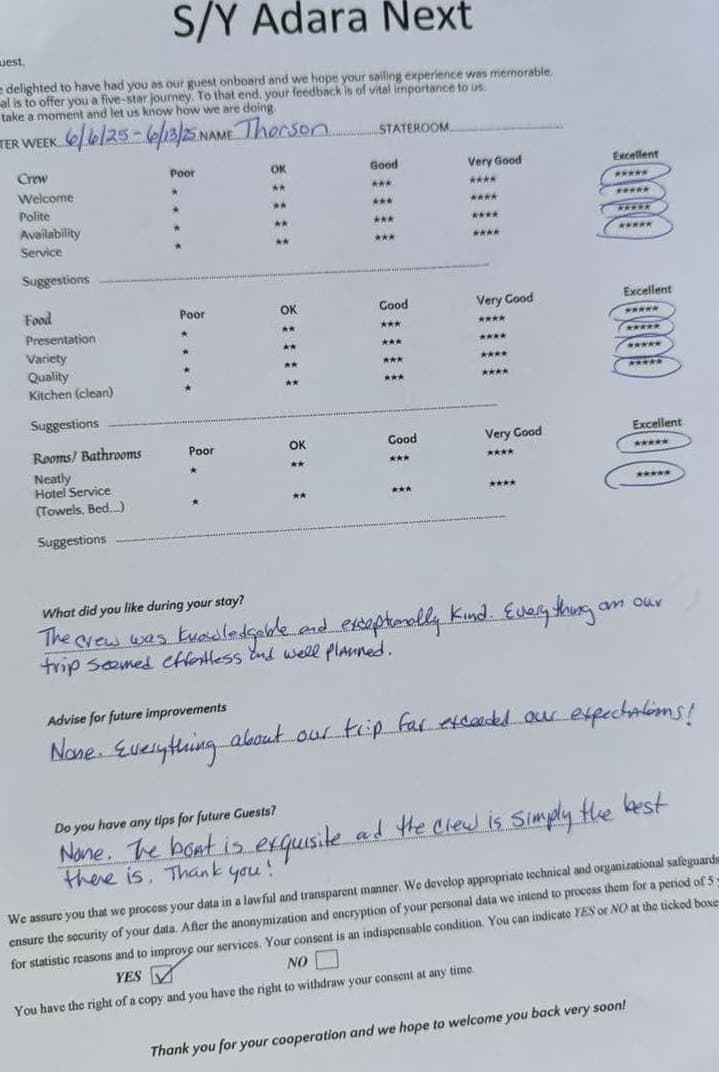 S/Y Adara Next
uest,
e delighted to have had you as our guest onboard and we hope your sailing experience was memorable.
al is to offer you a five-star journey. To that end, your feedback is of vital importance to us.
take a moment and let us know how we are doing.
TER WEEK 6/6/25 - 6/13/25 NAME Thorson STATEROOM
Crew Poor OK Good Very Good Excellent
Welcome * ** *** **** *****
Polite * ** *** **** *****
Availability * ** *** **** *****
Service * ** *** **** *****
Suggestions
Food Poor OK Good Very Good Excellent
Presentation * ** *** **** *****
Variety * ** *** **** *****
Quality * ** *** **** *****
Kitchen (clean) * ** *** **** *****
Suggestions
Rooms/ Bathrooms Poor OK Good Very Good Excellent
Neatly * ** *** **** *****
Hotel Service
(Towels, Bed...) * ** *** **** *****
Suggestions
What did you like during your stay?
The crew was knowledgable and exceptionally kind. Everything on our
trip seemed effortless and well planned.
Advise for future improvements
None. Everything about our trip far exceeded our expectations!
Do you have any tips for future Guests?
None. The boat is exquisite and the crew is simply the best
there is. Thank you!
We assure you that we process your data in a lawful and transparent manner. We develop appropriate technical and organizational safeguards
ensure the security of your data. After the anonymization and encryption of your personal data we intend to process them for a period of 5
for statistic reasons and to improve our services. Your consent is an indispensable condition. You can indicate YES or NO at the ticked boxe
YES ☑ NO ☐
You have the right of a copy and you have the right to withdraw your consent at any time.
Thank you for your cooperation and we hope to welcome you back very soon!